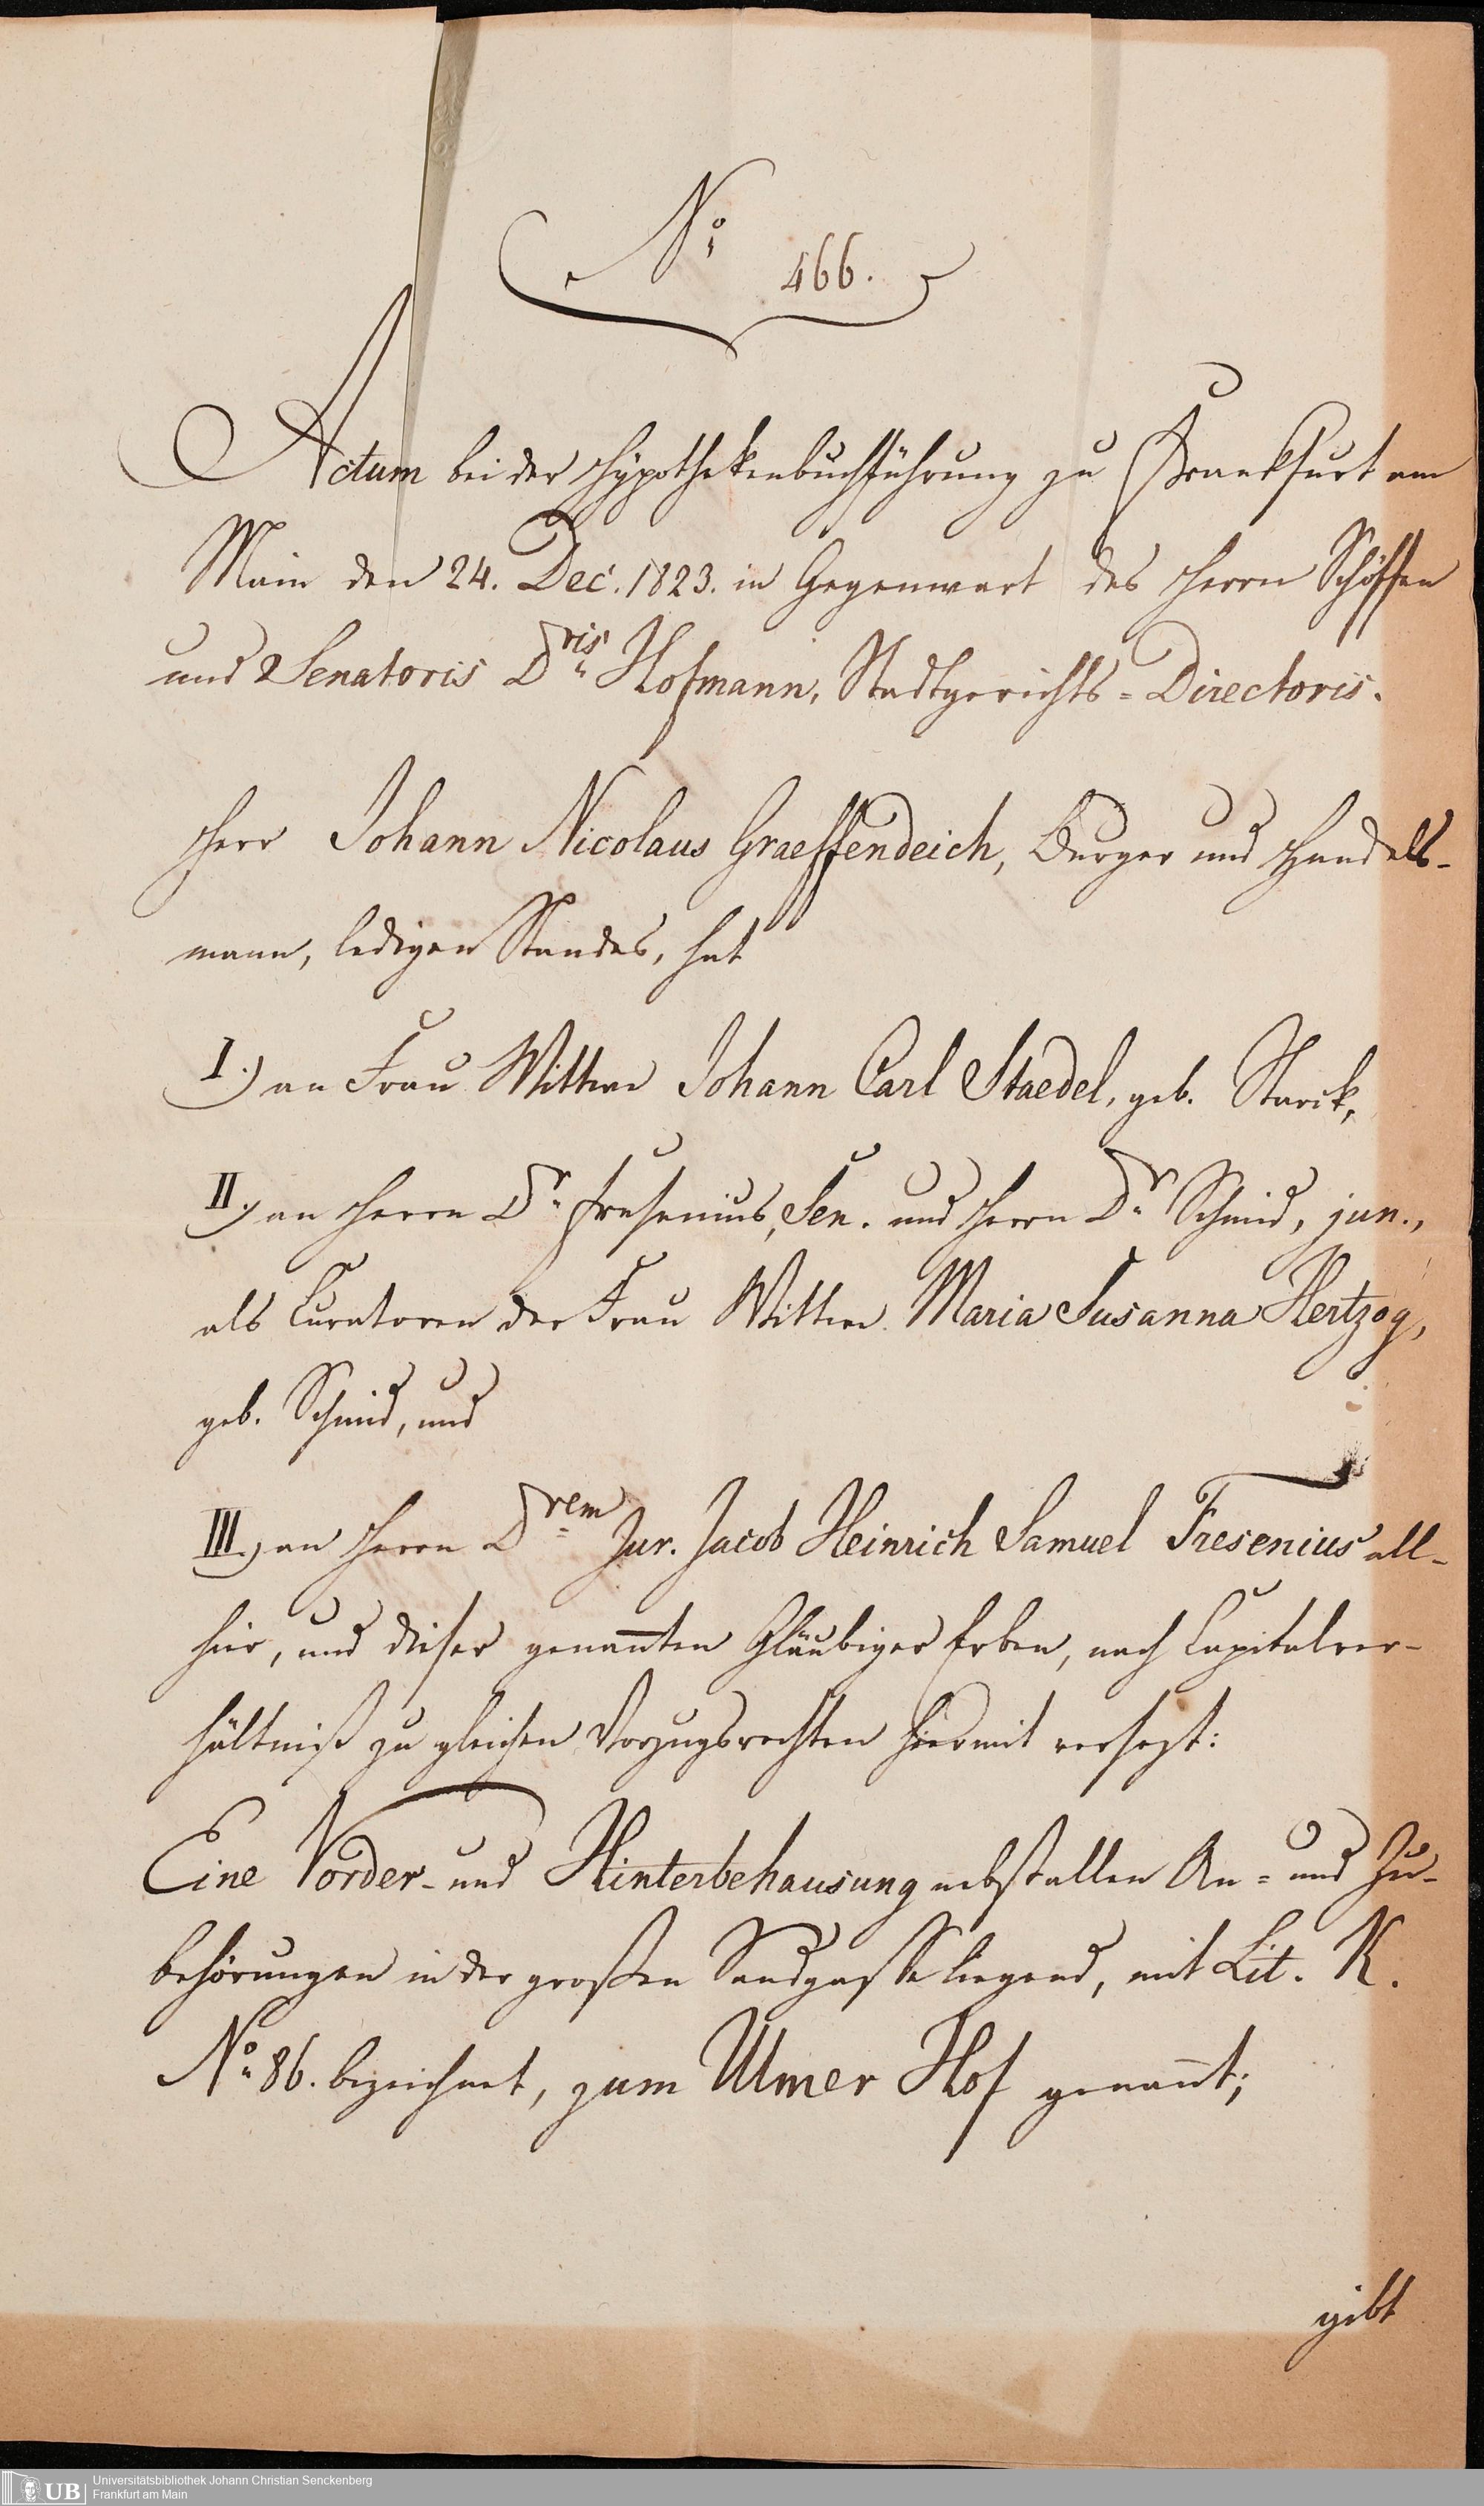 No. 466.
Actum bei der Hypothekenbuchführung zu Frankfurt am
Main den 24. Dec. 1823. in Gegenwart des Herrn Schöffen
und Senatoris Dris Hofmann, Stadtgerichts-Directoris.
Herr Johann Nicolaus Graeffendeich, Burger und Handels-
mann, ledigen Standes, hat
I.) an Frau Wittwe Johann Carl Staedel, geb. Starck,
II.) an Herrn Dr. Fresenius, Sen. und Herrn Dr. Schmid, jun.,
als Curatoren der Frau Wittwe Maria Susanna Hertzog,
geb. Schmid, und
III.) an Herrn Drem Jur. Jacob Heinrich Samuel Fresenius all-
hier, und dieser genañten Gläubiger Erben, nach Capitalver-
hältniß zu gleichen Vorzugsrechten hiermit versezt:
Eine Vorder- und Hinterbehausung nebst allen An- und Zu-
behörungen in der großen Sandgasse liegend, mit Lit. K.
No. 86. bezeichnet, zum Ulmer Hof genañt;
gibt
UB Universitätsbibliothek Johann Christian Senckenberg
Frankfurt am Main